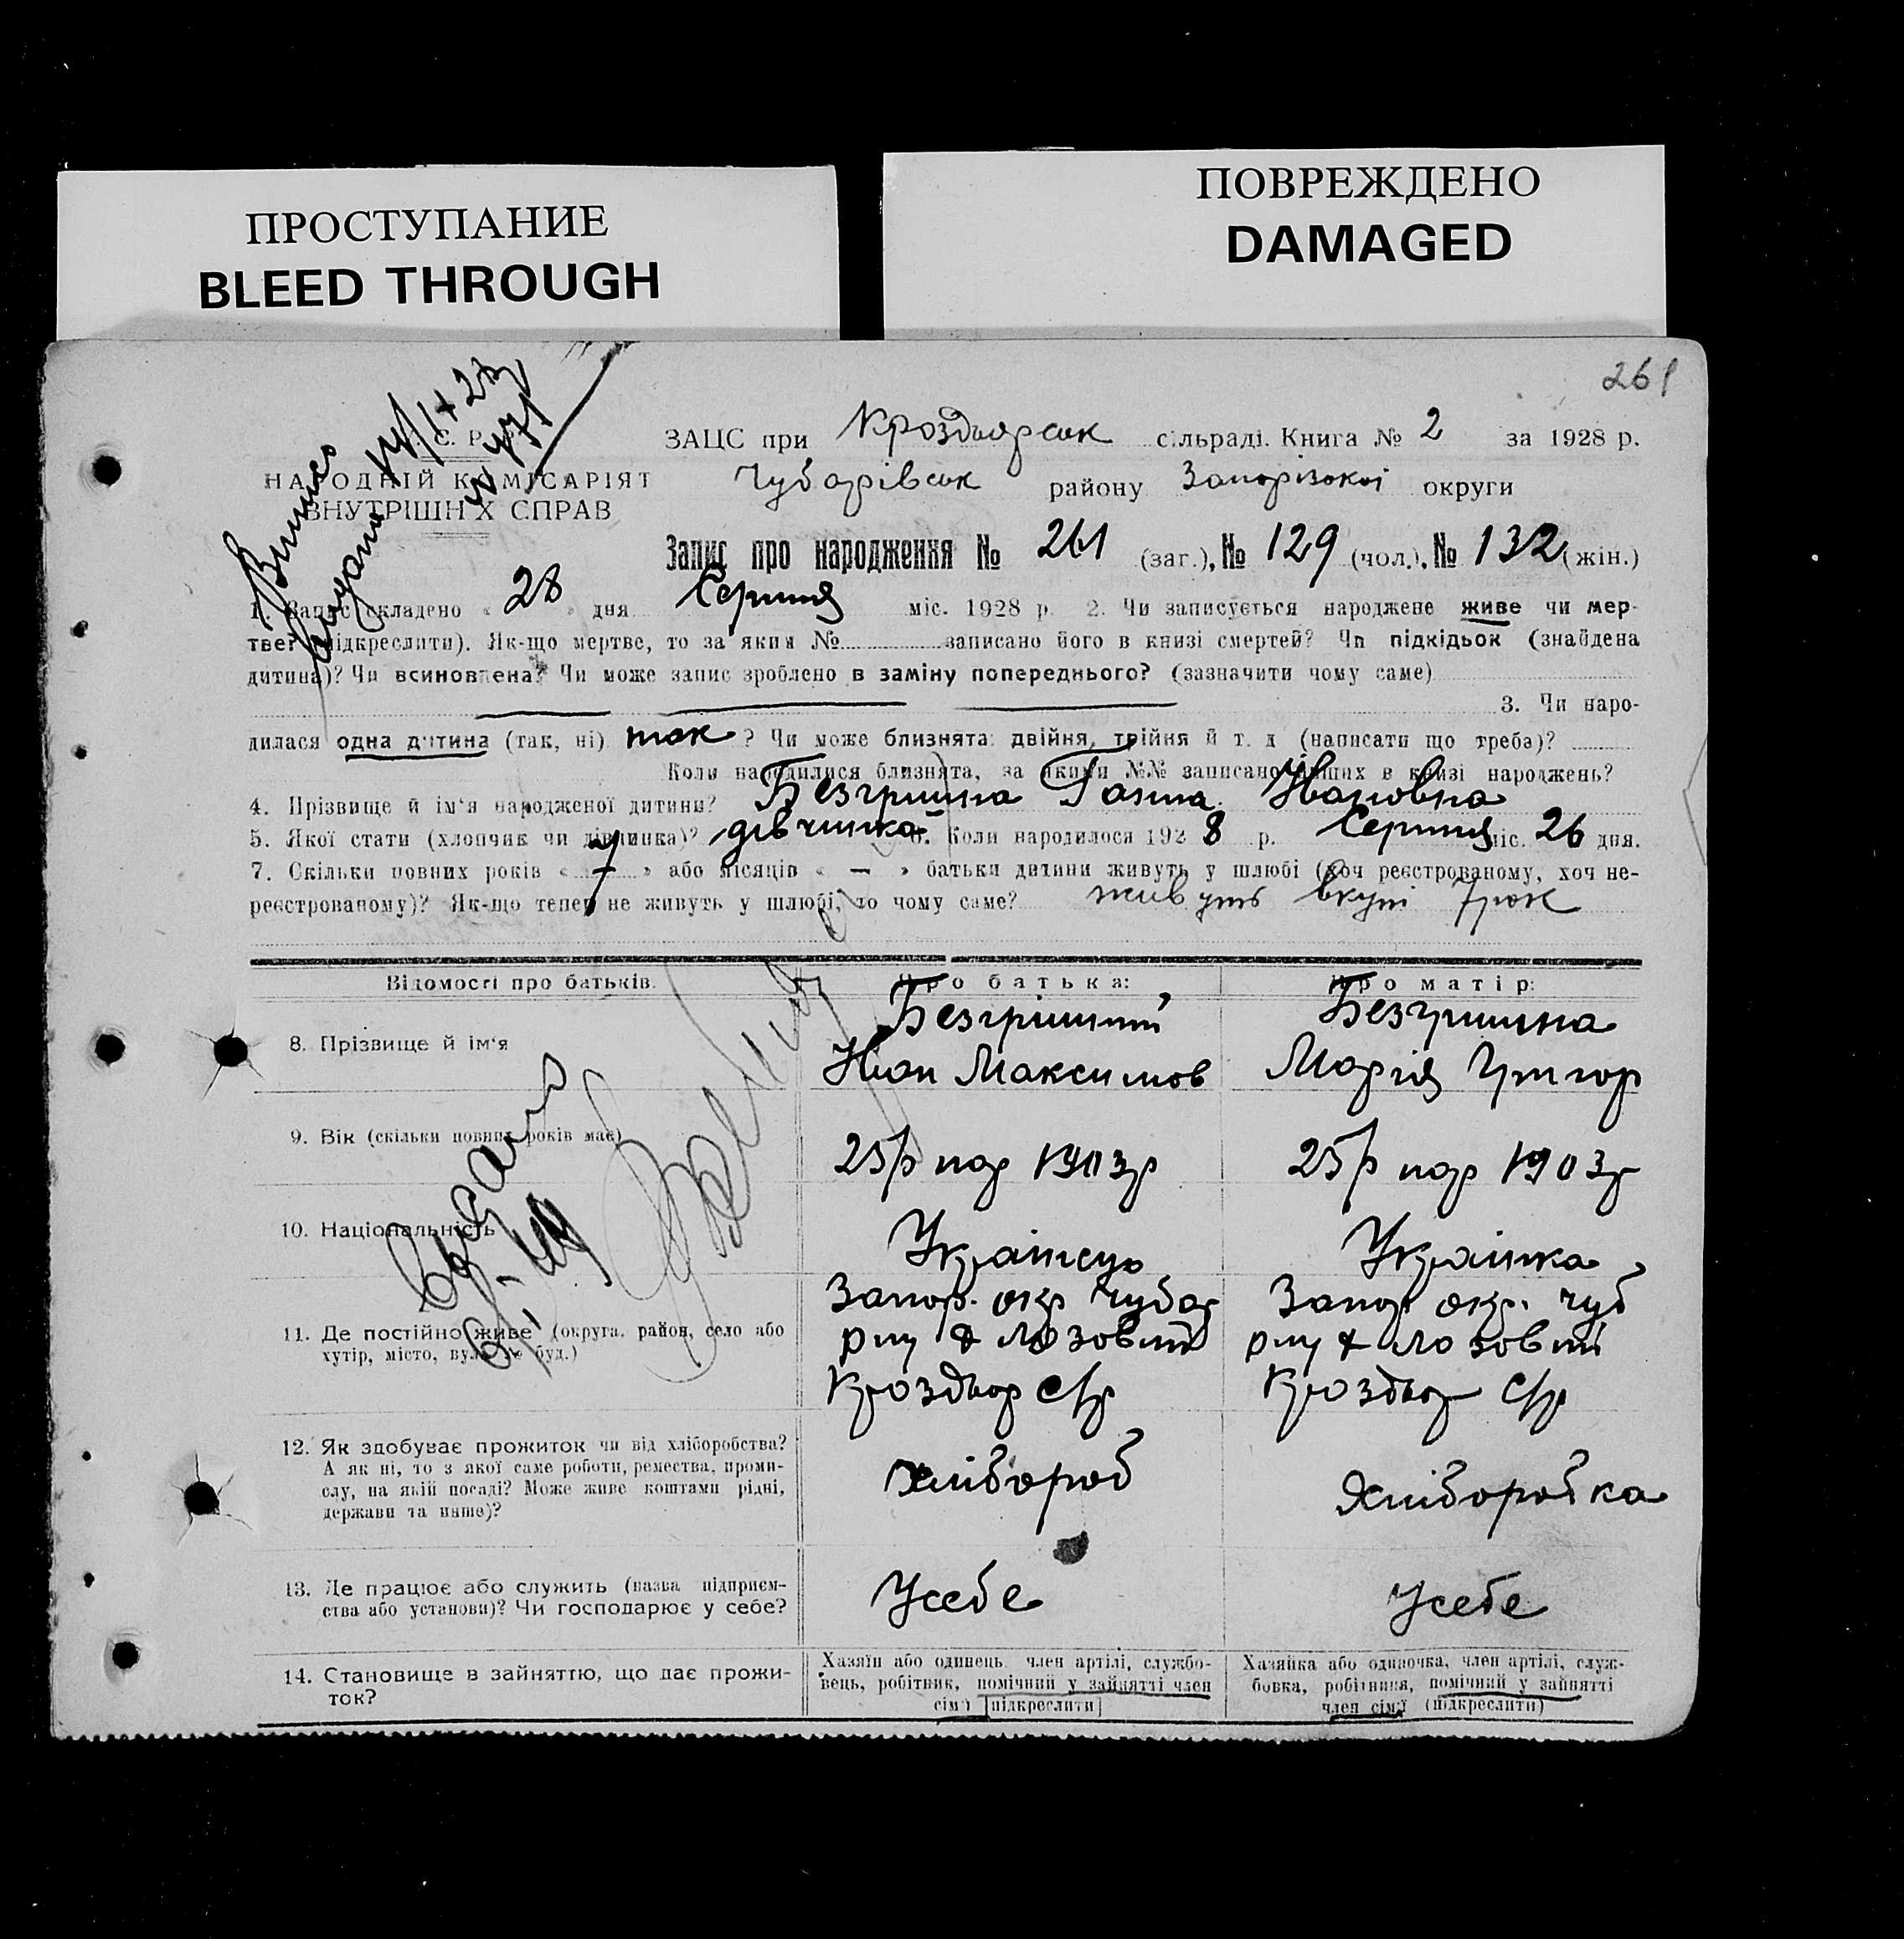 ПРОСТУПАНИЕ
BLEED THROUGH
ПОВРЕЖДЕНО
DAMAGED
261
ЗАЦС при сільраді. Книга № 2 за 1928 р.
НАРОДНІЙ КОМІСАРІЯТ
ВНУТРІШНІХ СПРАВ
Чубарівськ району Запорізької округи
Запис про народження № 261 (заг.), № 129 (чол.), № 132 (жін.)
1. Запис складено « 28 » дня Серпня міс. 1928 р. 2. Чи записується народжене живе чи мер-
тве (підкреслити). Як-що мертве, то за яким № записано його в книзі смертей? Чи підкідьок (знайдена
дитина)? Чи всиновлена? Чи може запис зроблено в заміну попереднього? (зазначити чому саме)
3. Чи наро-
дилася одна дитина (так, ні) так ? Чи може близнята: двійня, трійня й т. д. (написати що треба)?
Коли народилися близнята, за якими №№ записано інших в книзі народжень?
4. Прізвище й ім'я народженої дитини? Безгрішна Ганна Івановна
5. Якої стати (хлопчик чи дівчинка)? дівчинка 6. Коли народилося 1928 р. Серпня міс. 26 дня.
7. Скільки повних років « 7 » або місяців « — » батьки дитини живуть у шлюбі (хоч реєстрованому, хоч не-
реєстрованому)? Як-що тепер не живуть у шлюбі, то чому саме? живуть вкупі 7 рок
Відомості про батьків. Про батька: Про матір:
8. Прізвище й ім'я
Безгрішний
Иван Максимов
Безгришна
Марія Григор
9. Вік (скільки повних років має)
25 р нар 1903 р
25 р нар 1903 р
10. Національність
Українець
Українка
11. Де постійно живе (округа, район, село або
хутір, місто, вул. № буд.)
Запор. окр Чубар
рну х Лозовий
с/р
Запор окр. Чуб
рну х Лозовий
с/р
12. Як здобуває прожиток чи від хліборобства?
А як ні, то з якої саме роботи, ремества, проми-
слу, на якій посаді? Може живе коштами рідні,
держави та инше)?
Хлібороб
Хліборобка
13. Де працює або служить (назва підприєм-
ства або установи)? Чи господарює у себе?
Усебе
Усебе
14. Становище в зайняттю, що дає прожи-
ток?
Хазяїн або одинець, член артілі, службо-
вець, робітник, помічний у зайнятті член
сім'ї [підкреслити]
Хазяйка або одиночка, член артілі, служ-
бовка, робітниця, помічний у зайнятті
член сім'ї (підкреслити)